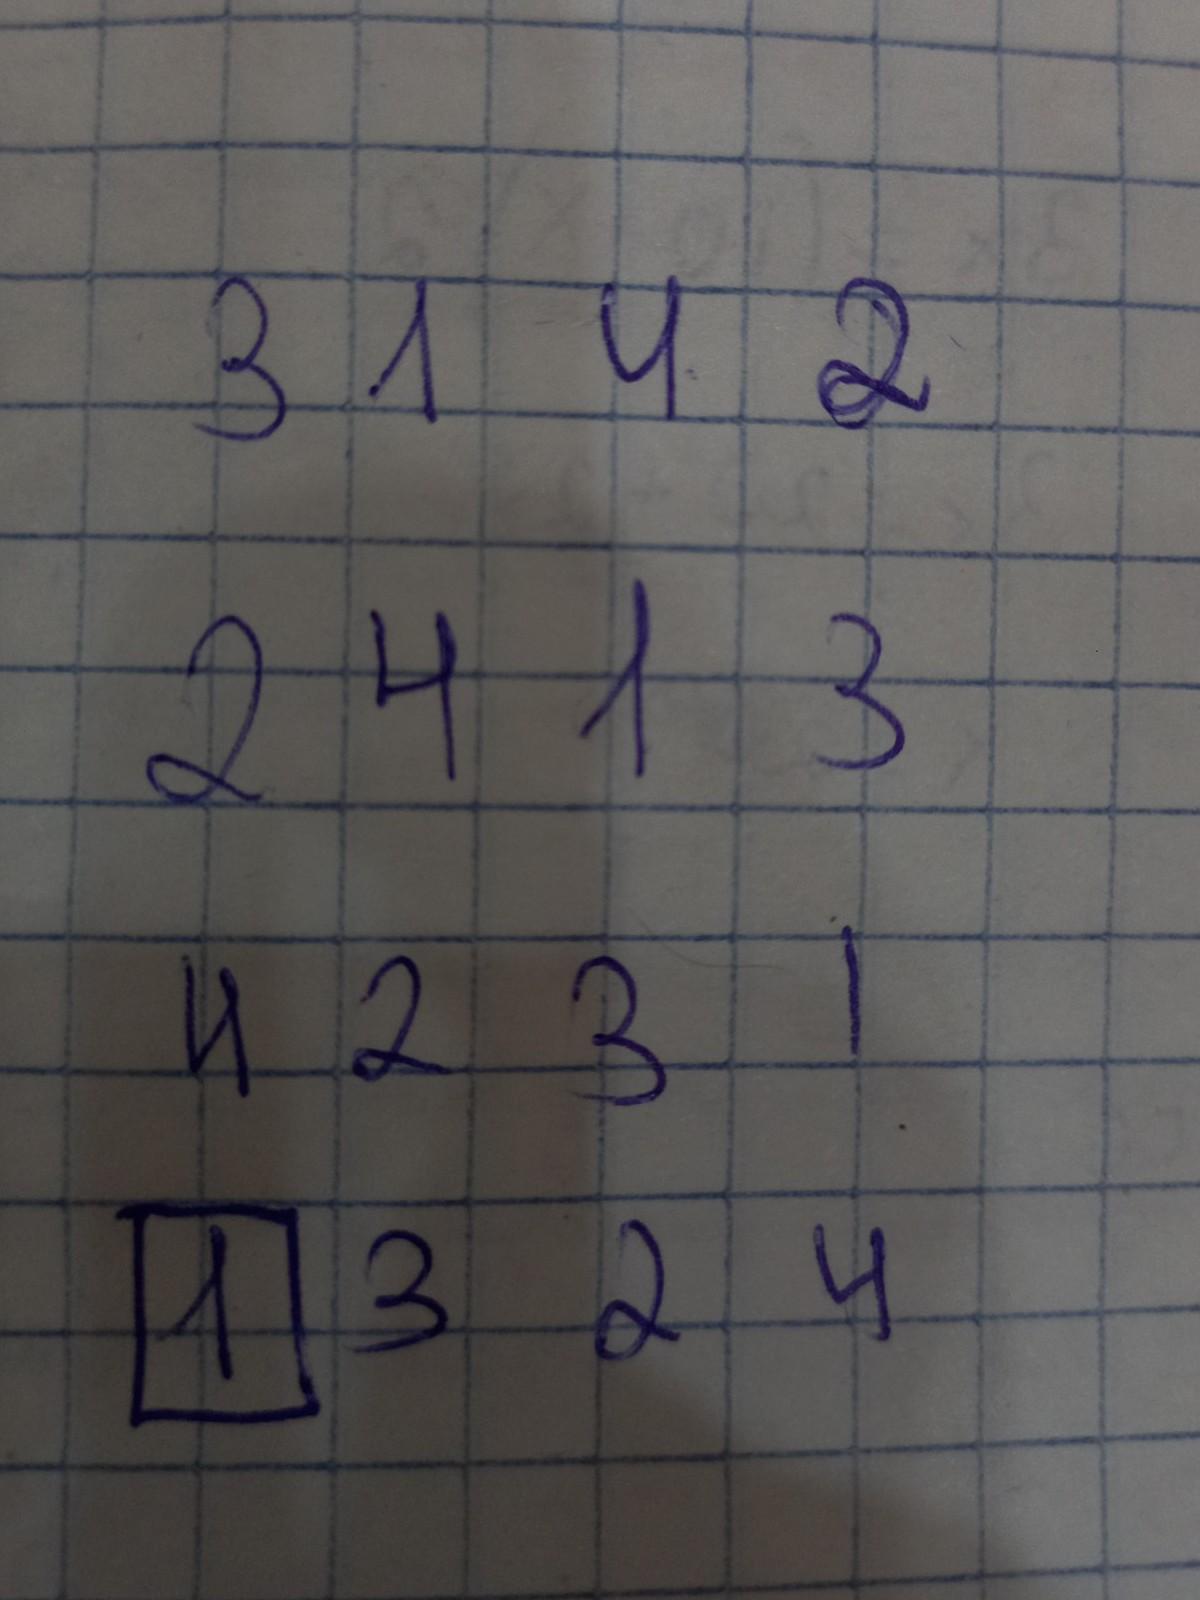 3 1 4 2
2 4 1 3
4 2 3 1
1 3 2 4